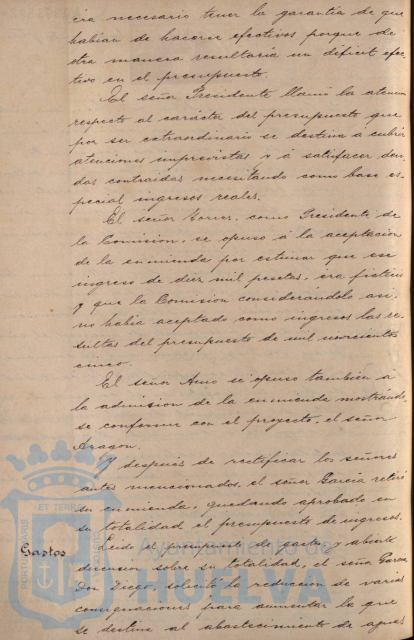 cia necesario tener la garantía de que
habían de hacerse efectivos porque de
otra manera resultaría un déficit efec
tivo en el presupuesto.
El señor Presidente llamó la atención
respecto al carácter del presupuesto que
por ser extraordinario se destina a cubrir
atenciones imprevistas y á satisfacer deu
das contraidas necesitando como base es
pecial ingresos reales.
El señor, como Presidente de
la Comisión, se opuso á la aceptación
de la enmienda por estimar que ese
ingreso de diez mil pesetas, era ficticio
y que la Comisión considerándolo así,
no había aceptado como ingresos las re
sultas del presupuesto de mil novecientos
cinco.
El señor Amo se opuso también á
la admisión de la enmienda mostrando
se conforme con el proyecto, el señor
Aragón.
Y después de rectificar los señores
antes mencionados, el señor García retiró
su enmienda, quedando aprobado en
su totalidad el presupuesto de ingresos.
Gastos
Leido el presupuesto de gastos y abierta
discusión sobre su totalidad, el señor García
Don Diego, solicitó la reducción de varias
consignaciones para aumentar la que
se destina al abastecimiento de aguas
PORTUS MARIS
ET TERRE
CUSTODIA
Ayuntamiento de
HUELVA